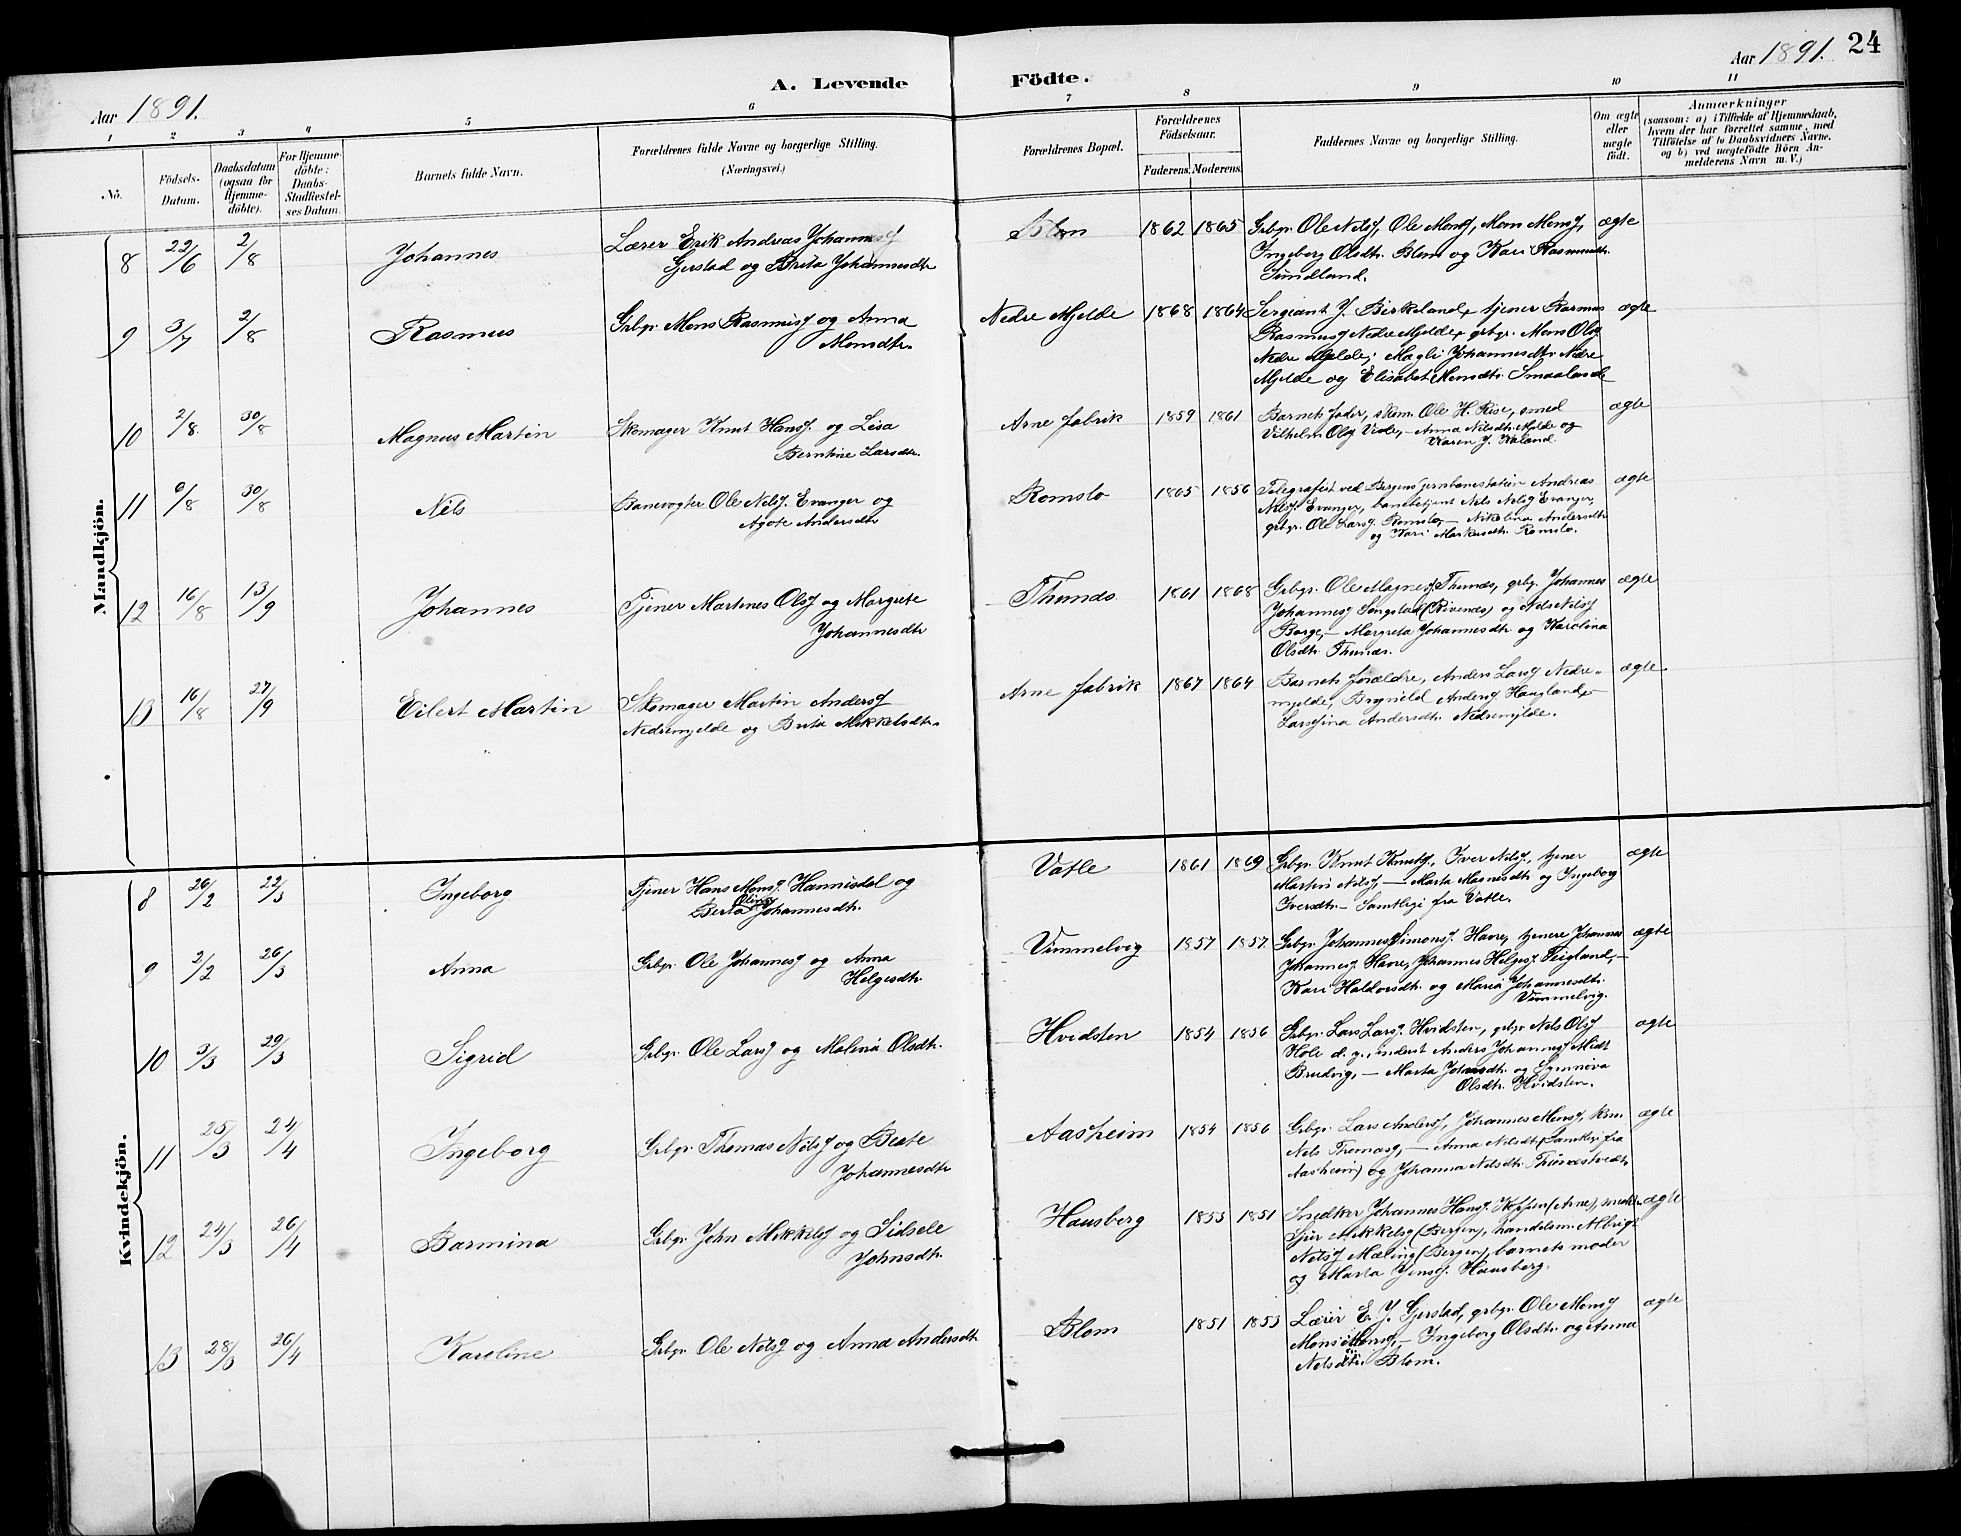 24
Aar 1891.
A. Levende Födte.
Aar 1891.
1 2 3 4 5 6 7 8 9 10 11
No.
Födsels-Datum.
Daabsdatum (ogsaa for Hjemmedöbte).
For Hjemmedöbte: Daabs-Stadfæstelses Datum.
Barnets fulde Navn.
Forældrenes fulde Navne og borgerlige Stilling.
(Næringsvei.)
Forældrenes Bopæl.
Forældrenes Födselsaar.
Faderens. Moderens.
Faddernes Navne og borgerlige Stilling.
Om ægte eller uægte födt.
Anmærkninger
(saasom: a) i Tilfælde af Hjemmedaab, hvem der har forrettet samme, med Tilföielse af to Daabsvidners Navne, og b) ved uægtefödte Börn Anmelderens Navn m. V.)
Mandkjön.
8 22/6 2/8 Johannes
Lærer Erik Andreas Johannesf
Gjerstad og Brita Johannesdtr.
Blom 1862 1865
Grbgr. Ole Nilsf, Ole Monsf, Mons Monsf,
Ingeborg Olsdtr. Blom og Kari Rasmusdtr.
Sundland.
ægte
9 3/7 2/8 Rasmus
Grbgr. Mons Rasmusf og Anna
Monsdtr.
Nedre Mjelde 1868 1864
Sergeant J. Birkeland, tjener Rasmus
Rasmusf Nedre Mjelde, grbgr. Mons Olsf
Nedre Mjelde; Magli Johannesdtr. Nedre
Mjelde og Elisabet Monsdtr. Smaalande
ægte
10 2/8 30/8 Magnus Martin
Skomager Knut Hansf. og Lisa
Berntine Larsdtr.
Arne fabrik 1859 1861
Barnets fader, skom. Ole H. Rise, smed
Vilhelm Olsf Vide, – Anna Nilsdtr. Mjelde og
Karen J. Kaland.
ægte
11 9/8 30/8 Nils
Banevogter Ole Nilsf. Evanger og
Agote Andersdtr
Romslo 1865 1856
Telegrafist ved Bergens jernbanestation Andreas
Nilsf Evanger, banebetjent Nils Nilsf Evanger,
grbgr. Ole Larsf Romslo, – Nikolina Andersdtr
og Kari Markusdtr. Romslo.
ægte
12 16/8 13/9 Johannes
Tjener Martines Olsf og Margrete
Johannesdtr
Thunæs 1861 1868
Grbgr. Ole Magnesf Thunæs, grbgr. Johannes
Johannesf Songstad (Rivenæs) og Nils Nilsf
Borge, – Margreta Johannesdtr og Karolina
Olsdtr. Thunæs.
ægte
13 16/8 27/9 Eilert Martin
Skomager Martin Andersf
Nedremjelde og Brita Mikkelsdtr.
Arne fabrik 1867 1864
Barnets forældre, Anders Larsf Nedre-
mjelde, Brynild Andersf Haugland, –
Larsina Andersdtr. Nedremjelde.
ægte
Kvindekjön.
8 26/2 22/3 Ingeborg
Tjener Hans Monsf. Hannisdal og
Berta Olina Johannesdtr.
Vatle 1861 1869
Grbgr. Knut Knutsf, Iver Nilsf, tjener
Martin Nilsf, – Marta Magnesdtr og Ingeborg
Iversdtr. – Samtlige fra Vatle.
ægte
9 2/2 26/3 Anna
Grbgr. Ole Johannesf og Anna
Helgesdtr.
Vimmelvig 1857 1857
Grbgr. Johannes Simonsf. Havre, tjenere Johannes
Johannesf. Havre, Johannes Helgesf Teigland, –
Kari Haldorsdtr. og Maria Johannesdtr.
Vimmelvig.
ægte
10 3/3 29/3 Sigrid
Grbgr. Ole Larsf og Malena Olsdtr.
Hvidsten 1854 1856
Grbgr. Lars Larsf. Hvidsten, grbgr. Nils Olsf
Hole d. y., inderst Anders Johannesf Midt
Brudvig, – Marta Johansdtr. og Synneva
Olsdtr. Hvidsten.
ægte
11 25/3 24/4 Ingeborg
Grbgr. Thomas Nilsf og Beate
Johannesdtr
Aasheim 1854 1856
Grbgr. Lars Andersf, Johannes Monsf,
Nils Thomasf, – Anna Nilsdtr (Samtlige fra
Aasheim) og Johanna Nilsdtr. Thunæstvedt.
ægte
12 24/3 26/4 Barmina
Grbgr. John Mikkelsf og Sidsele
Johnsdtr.
Hausberg 1853 1851
Snedker Johannes Hansf. Koppen (Arne),
Sjur Mikkelsf (Bergen), handelsm. Albrigt
Nilsf Mæling (Bergen), barnets moder
og Marta Jensf. Hausberg.
ægte
13 28/3 26/4 Karoline
Grbgr. Ole Nilsf og Anna Andersdtr
Blom 1851 1853
Lærer E. J. Gjerstad, grbgr. Ole Monsf
Mons Monsf, – Ingeborg Olsdtr. og Anna
Nilsdtr. Blom.
ægte